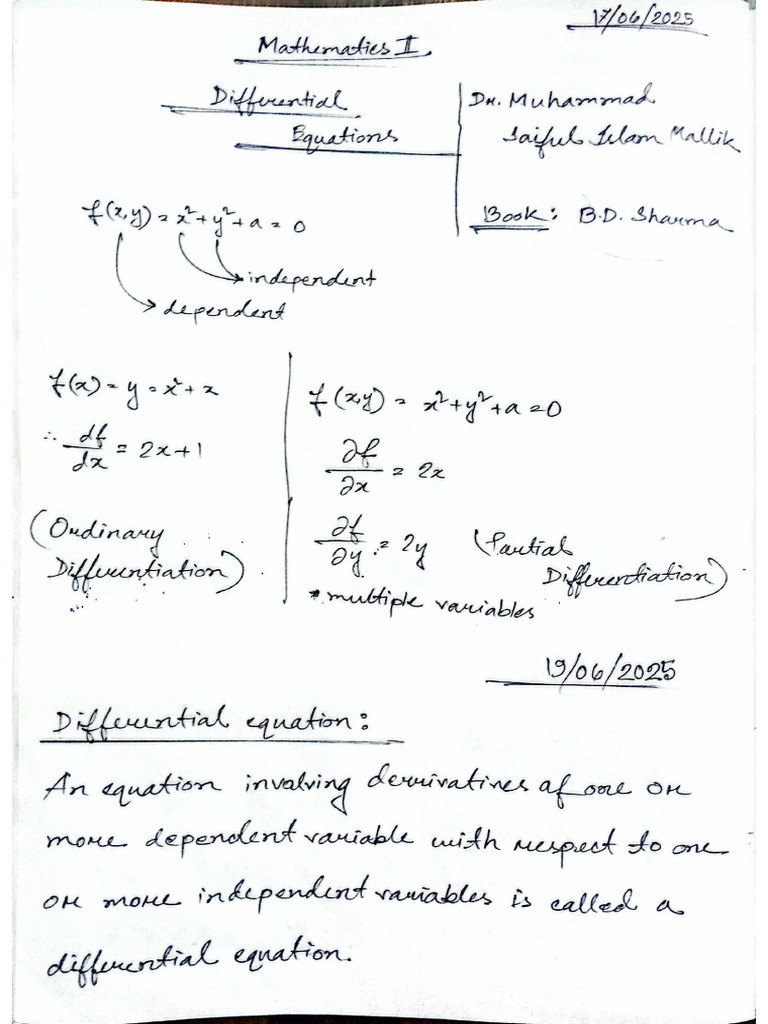 17/06/2025
Mathematics II
Differential
Equations
Dr. Muhammad
Saiful Islam Mallik
Book: B.D. Sharma
f(x,y) = x²+y²+a = 0
independent
dependent
f(x) = y = x²+x
∴ df/dx = 2x+1
(Ordinary
Differentiation)
f(x,y) = x²+y²+a=0
∂f/∂x = 2x
∂f/∂y = 2y (Partial
Differentiation)
*multiple variables
19/06/2025
Differential equation:
An equation involving derrivatives of one or
more dependent variable with respect to one
or more independent variables is called a
differential equation.